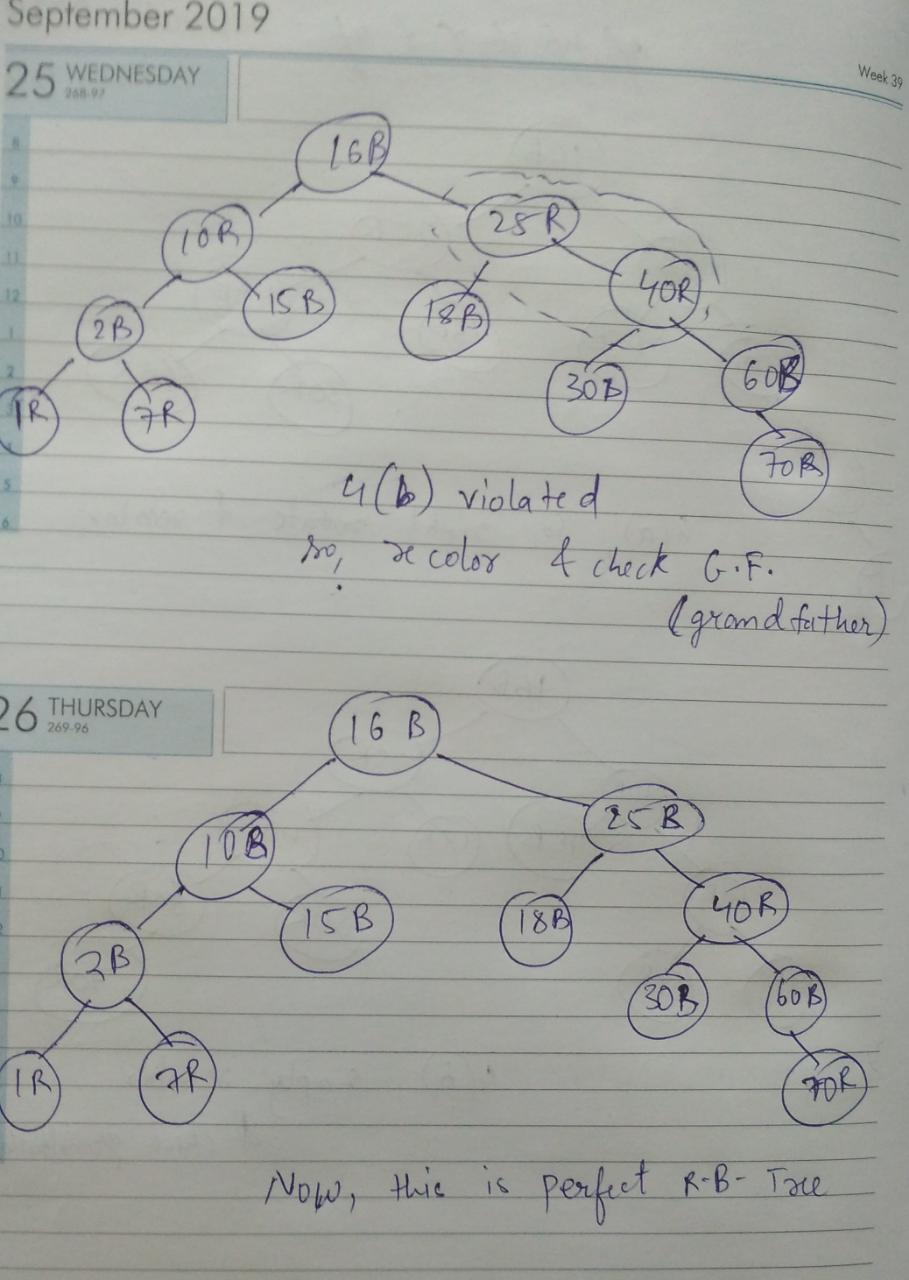 September 2019
25 WEDNESDAY
268-97
Week 39
8
16B
9
10
10R 25R
11
12
2B 15B 18B 40R
1
2
1R 7R 30B 60B
70R
4(b) violated
5
so, recolor & check G.F.
6
(grandfather)
26 THURSDAY
269-96
16 B
10B 25 B
2B 15B 18B 40R
30B 60B
1R 7R 70R
Now, this is perfect R-B- Tree